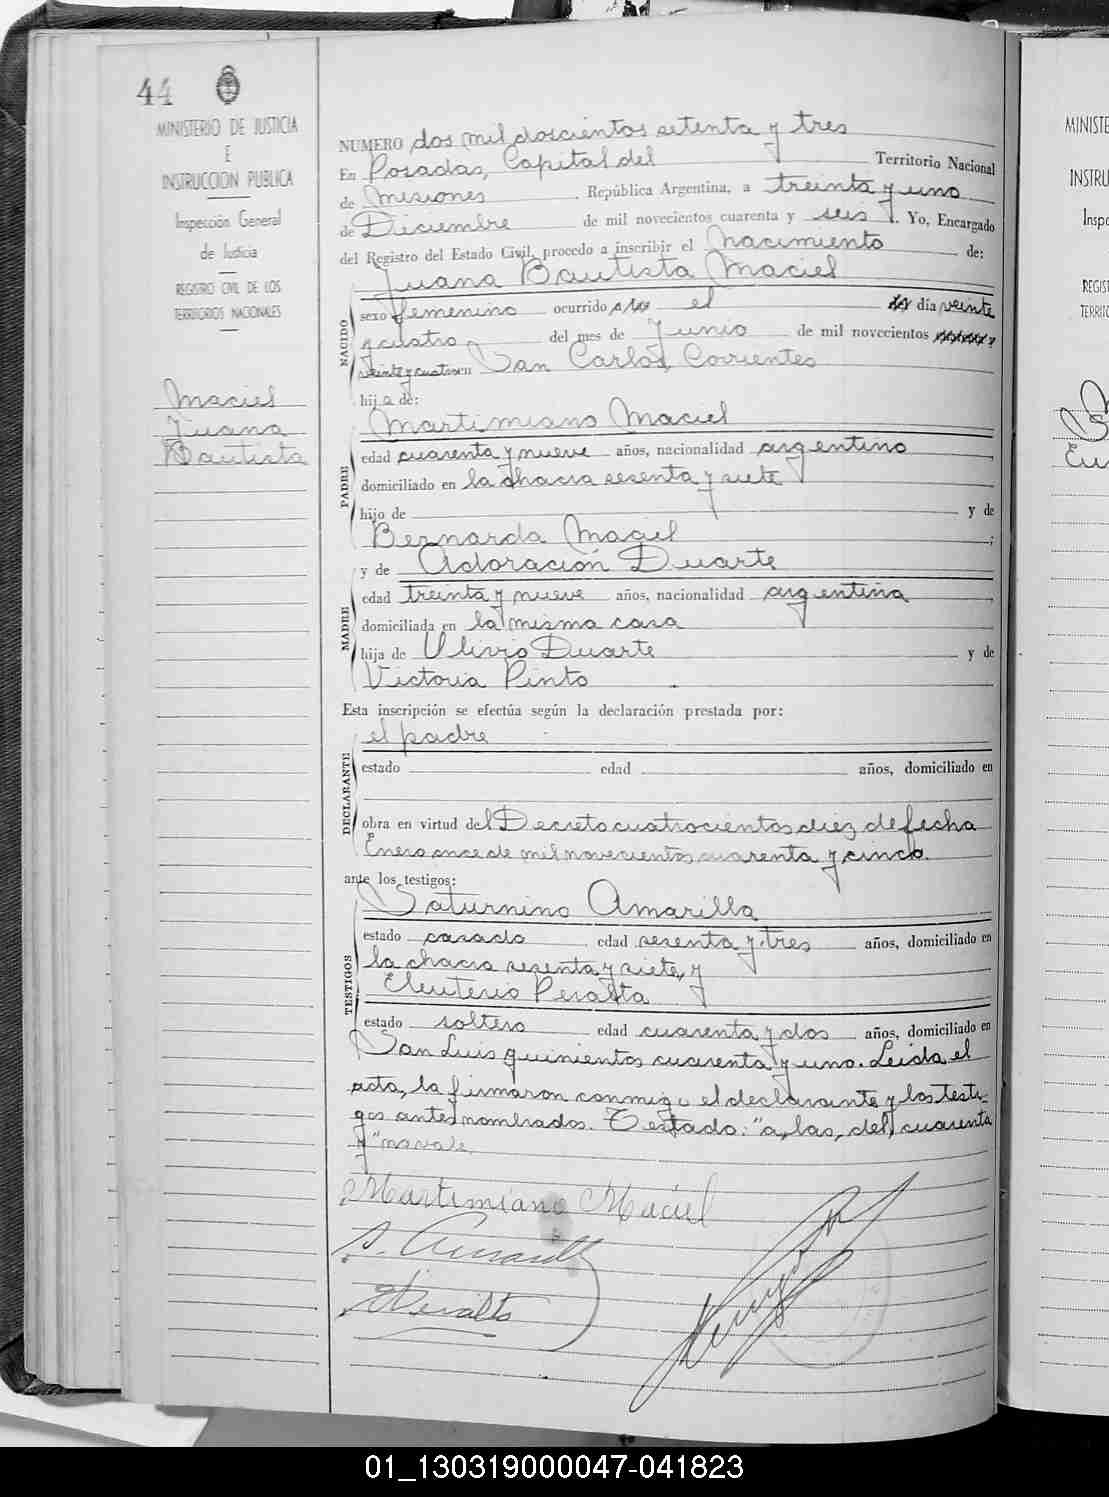 44
MINISTERIO DE JUSTICIA
E
INSTRUCCION PUBLICA
Inspección General
de Justicia
REGISTRO CIVIL DE LOS
TERRITORIOS NACIONALES
Maciel
Juana
Bautista
NUMERO dos mil doscientos setenta y tres
En Posadas, Capital del Territorio Nacional
de Misiones República Argentina, a treinta y uno
de Diciembre de mil novecientos cuarenta y seis. Yo, Encargado
del Registro del Estado Civil, procedo a inscribir el nacimiento de:
Juana Bautista Maciel
NACIDO
sexo femenino ocurrido el día veinte
y cuatro del mes de Junio de mil novecientos
veinte y cuatro en San Carlos, Corrientes
hija de:
Martimiano Maciel
PADRE
edad cuarenta y nueve años, nacionalidad argentino
domiciliado en la chacra sesenta y siete
hijo de y de
Bernarda Maciel;
y de Adoración Duarte
MADRE
edad treinta y nueve años, nacionalidad argentina
domiciliada en la misma casa
hija de Ulivro Duarte y de
Victoria Pinto
Esta inscripción se efectúa según la declaración prestada por:
el padre
DECLARANTE
estado edad años, domiciliado en
obra en virtud del Decreto cuatrocientos diez de fecha
Enero once de mil novecientos cuarenta y cinco.
ante los testigos:
Saturnino Amarilla
TESTIGOS
estado casado edad sesenta y tres años, domiciliado en
la chacra sesenta y siete, y
Eleuterio Peralta
estado soltero edad cuarenta y dos años, domiciliado en
San Luis quinientos cuarenta y uno. Leida el
acta, la firmaron conmigo el declarante y los testi-
gos antes nombrados. Testado: "a, las, del, cuarenta
y" no vale.
Martimiano Maciel
S. Amarilla
E Peralta
MINISTE
INSTRU
Inspe
REGIST
TERRITO
01_130319000047-041823